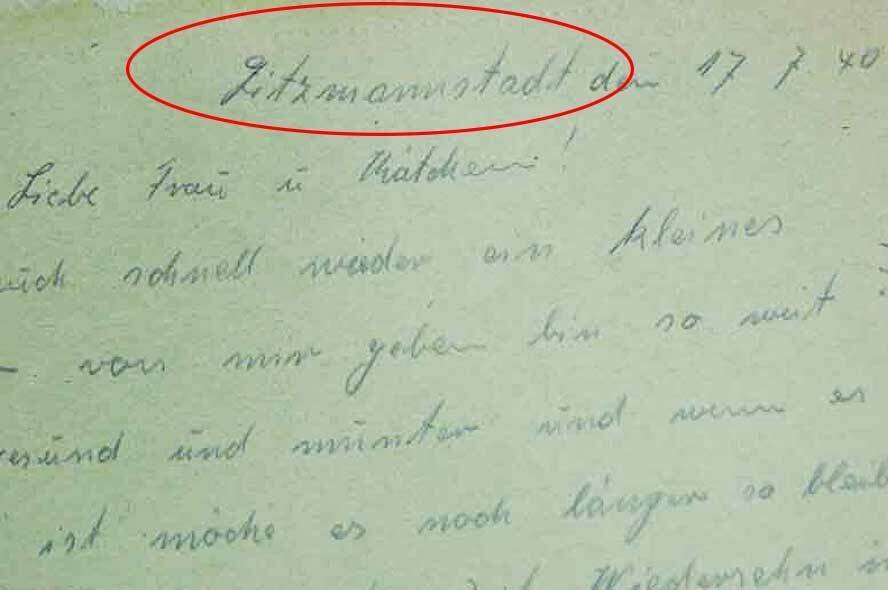 Litzmannstadt den 17 7. 40
Liebe Frau u Kätchen!
euch schnell wieder ein kleines
– von mir geben bin so weit
gesund und munter und wenn es
ist möchte es noch länger so bleib
Wiedersehn in